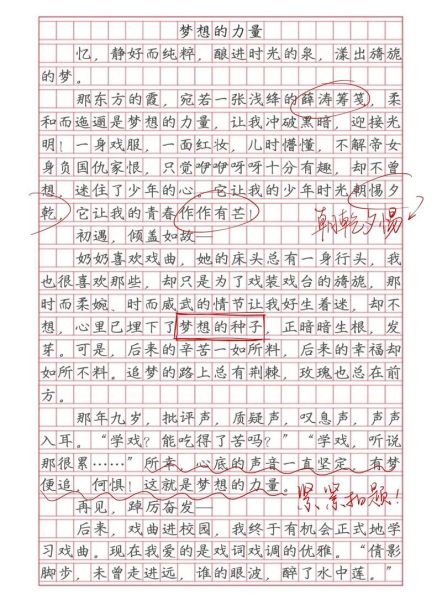 梦想的力量
忆，静好而纯粹，酿进时光的泉，漾出旖旎
的梦。
那东方的霞，宛若一张浅绛的薛涛筹笺，柔
和而迤逦是梦想的力量，让我冲破黑暗，迎接光
明！一身戏服，一面红妆，儿时懵懂，不解帝女
身负国仇家恨，只觉咿咿呀呀十分有趣，却不曾
想，迷住了少年的心。它让我的少年时光朝惕夕
乾，它让我的青春作作有芒！
朝乾夕惕
初遇，倾盖如故
奶奶喜欢戏曲，她的床头总有一身行头，我
也很喜欢那些，却只是为了戏装戏台的旖旎，那
时而柔婉、时而威武的情节让我好生着迷，却不
想，心里已埋下了梦想的种子，正暗暗生根，发
芽。可是，后来的辛苦一如所料，后来的幸福却
如所不料。追梦的路上总有荆棘，玫瑰也总在前
方。
那年九岁，批评声，质疑声，叹息声，声声
入耳。“学戏？能吃得了苦吗？”“学戏，听说
那很累……”所幸，心底的声音一直坚定，有梦
便追，何惧！这就是梦想的力量。
紧紧扣题！
再见，踔厉奋发—
后来，戏曲进校园，我终于有机会正式地学
习戏曲。现在我爱的是戏词戏调的优雅。“倩影
脚步，未曾走进远，谁的眼波，醉了水中莲。”